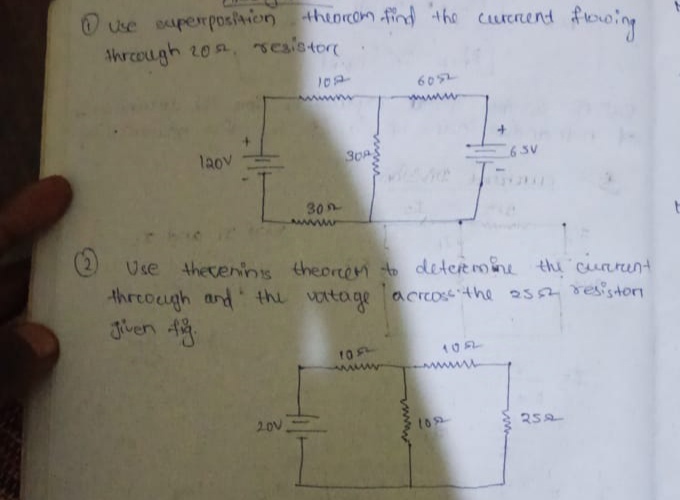 ① Use superposition theorem find the current flowing
through 20Ω. resistor
10Ω 60Ω
120V + - 30Ω + - 65V
30Ω
② Use thevenin's theorem to determine the current
through and the voltage across the 25Ω resistor
given fig.
10Ω 10Ω
20V 10Ω 25Ω